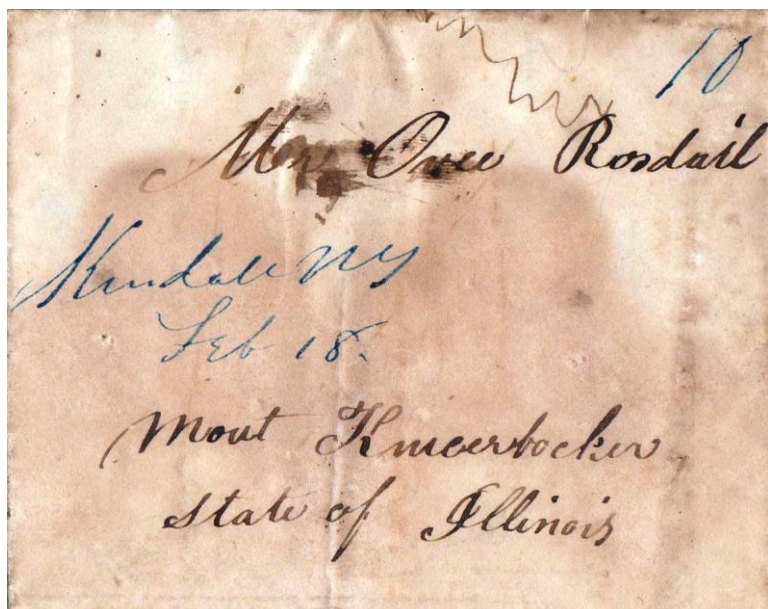 10
Mr Ovee Rosdail
Kendall NY
Feb 18.
Mout Knicerbocker
State of Illinois